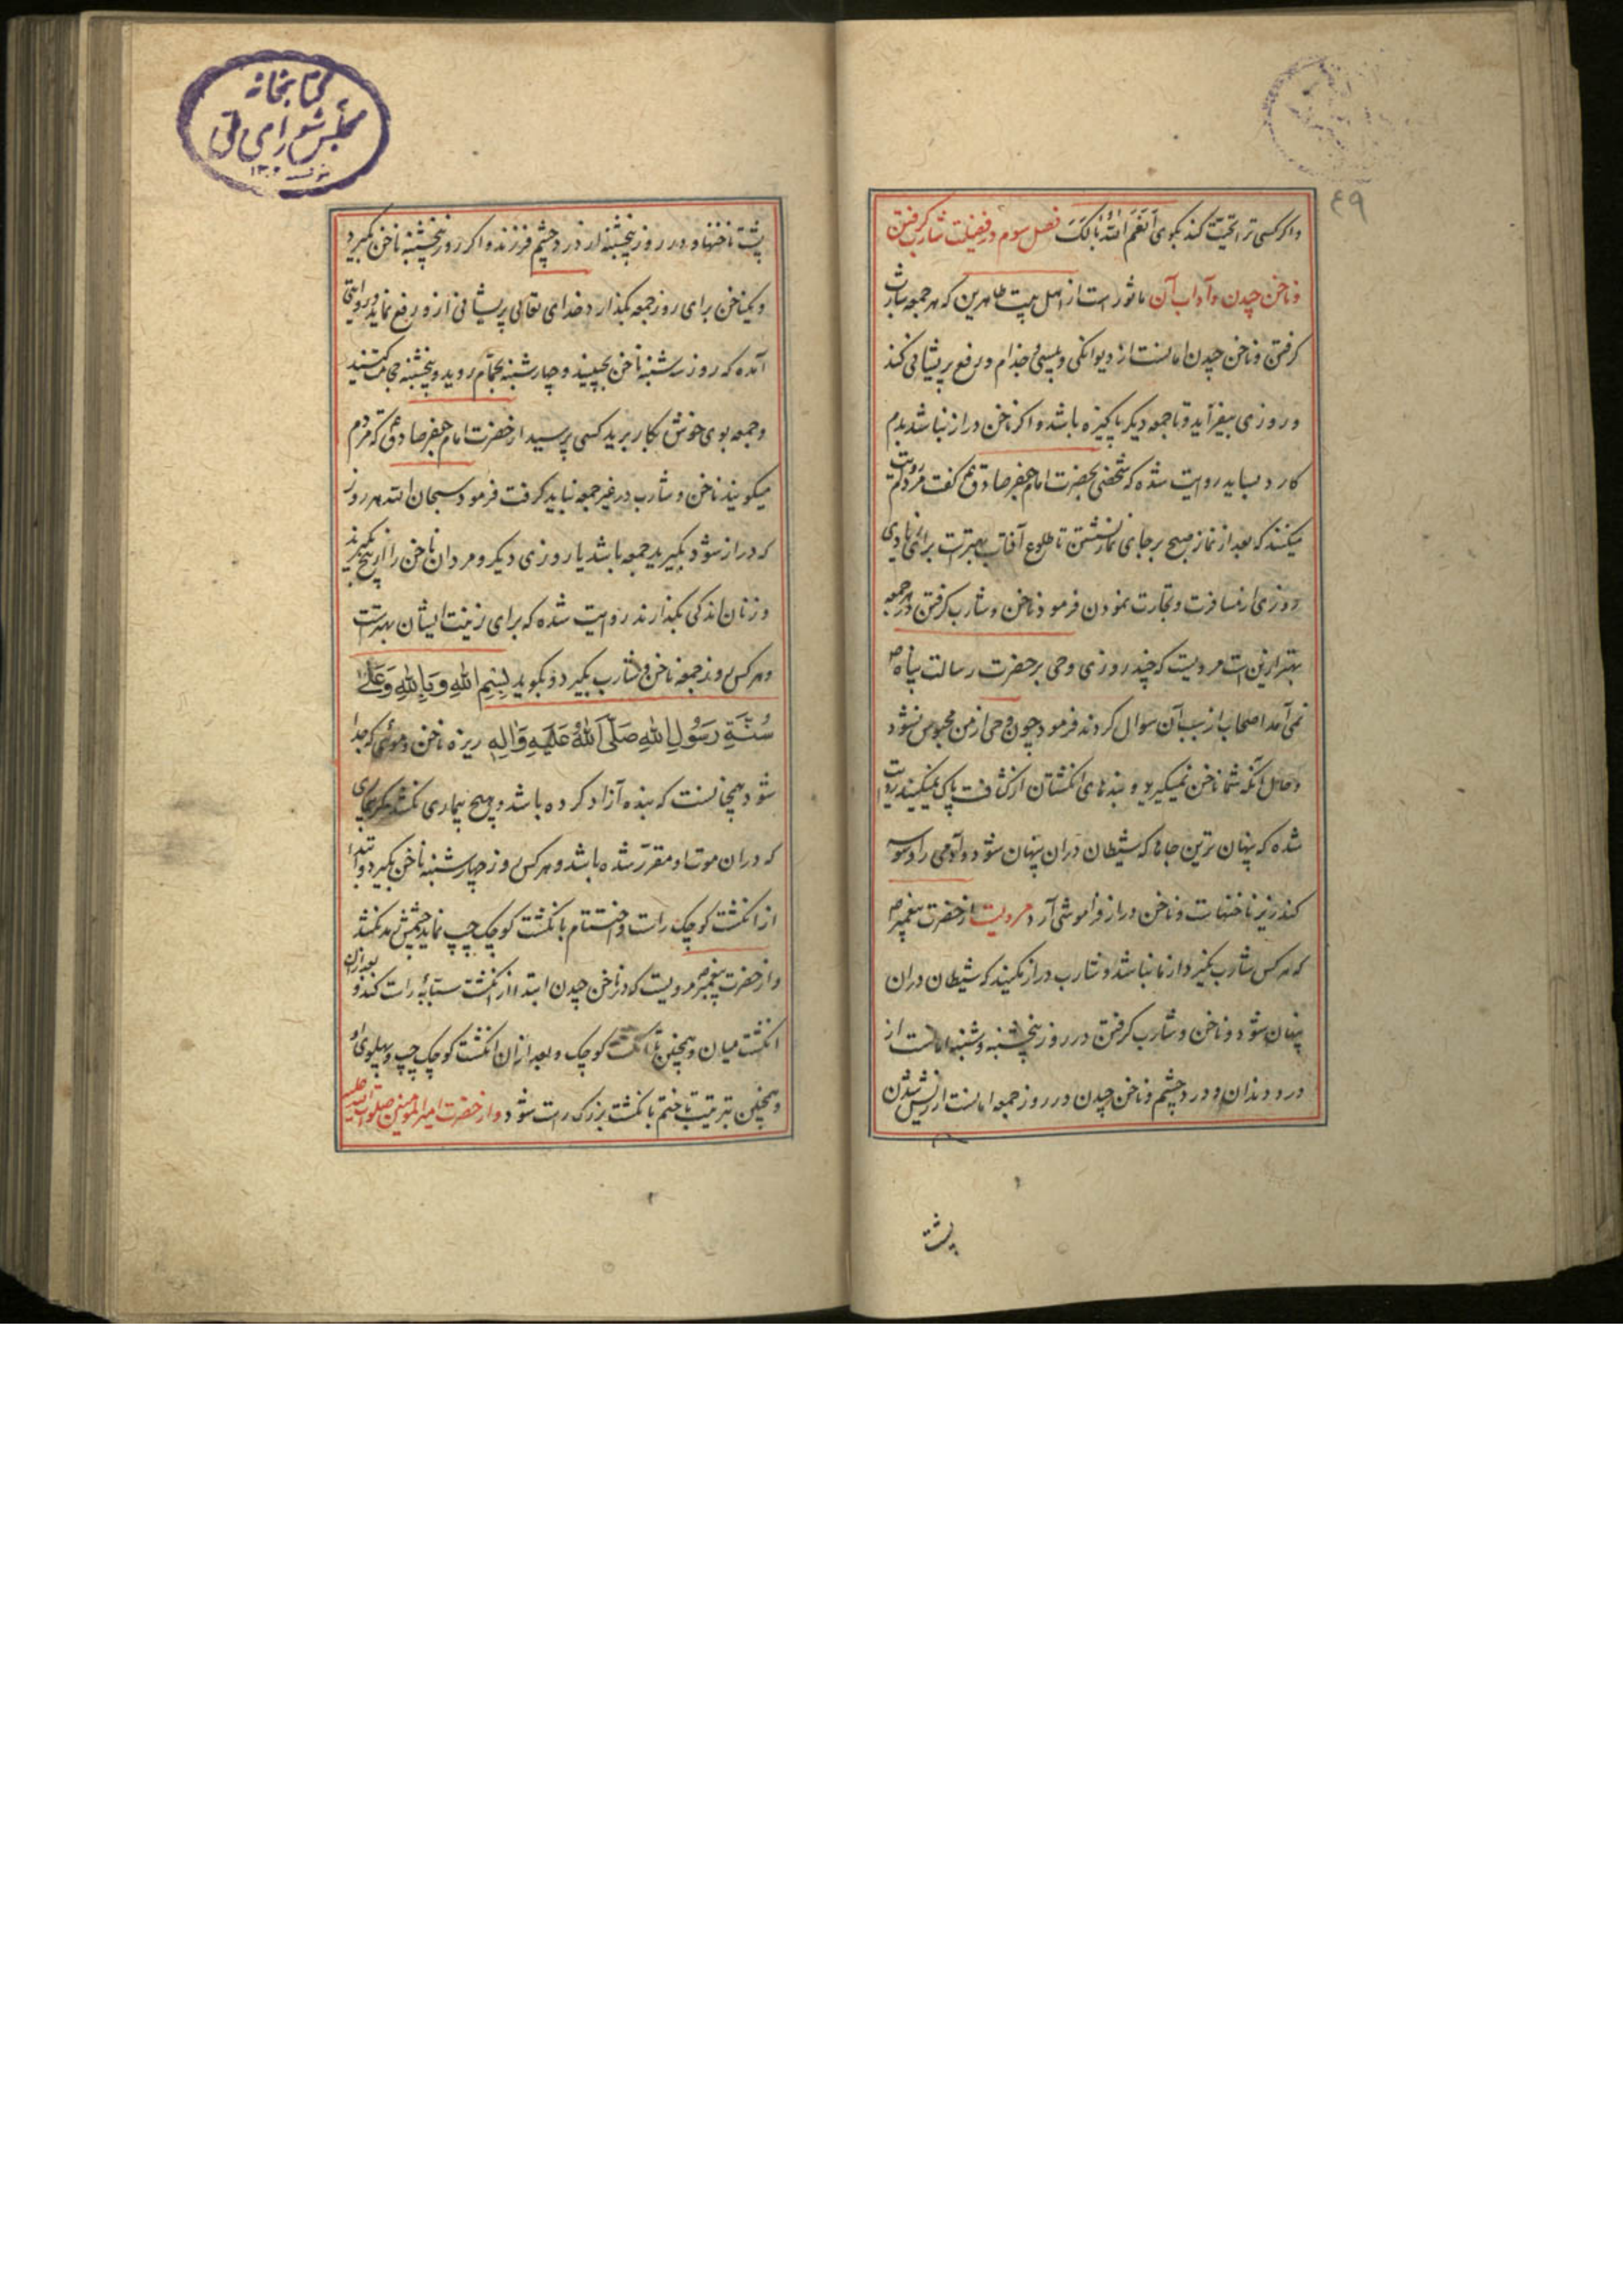 ۴۹
واکر کسی ترا تحیت کند بکوی اَنْعَمَ اللّٰهُ بالَکَ فصل سوم در فضیلت شارب کرفتن
و ناخن چیدن و آداب آن ماثور است از اهل بیت طاهرین که هر جمعه شارب
کرفتن و ناخن چیدن امانست از دیوانکی و پیسی و جذام و رفع پریشانی کند
و روزی بیفزاید و تا جمعه دیکر پاکیزه باشد و اکر ناخن دراز نباشد بدم
کارد بساید روایت شده که شخصی بحضرت امام جعفر صادق ع گفت مردم روایت
میکنند که بعد از نماز صبح بر جای نماز نشستن تا طلوع آفتاب بهترست برای زیادی
روزی از مسافرت و تجارت نمودن فرمود ناخن و شارب کرفتن در جمعه
بهتر ازین است مرویست که چند روزی وحی بر حضرت رسالت پناه ص
نمی آمد اصحاب از سبب آن سوال کردند فرمود چون وحی از من محبوس نشود
و حال آنکه شما ناخن نمیکیرید و بندهای انکشتان از کثافت پاک نمیکنید روایت
شده که پنهان ترین جاها که شیطان در ان پنهان شود و آدمی را وسوسه
کند زیر ناخنهاست و ناخن دراز فراموشی آرد مرویست از حضرت پیغمبر ص
که هر کس شارب نکیرد از ما نباشد و شارب دراز مکنید که شیطان در ان
پنهان شود و ناخن و شارب کرفتن در روز پنچشنبه و شنبه امانست از
درد دندان و درد چشم و ناخن چیدن در روز جمعه امانست از ریش شدن
پشت
کتابخانه
مجلس شورای ملی
پشت ناخنها و در روز پنچشنبه از درد چشم فرزند و اکر روز پنچشنبه ناخن بکیرد
و یکناخن برای روز جمعه بکذارد خدای تعالی پریشانی ازو رفع نماید و روایتی
آمده که روز سشنبه ناخن بچینید و چارشنبه بحمام روید و پنچشنبه حجامت کنید
و جمعه بوی خوش بکار برید کسی پرسید از حضرت امام جعفر صادق ع که مردم
میکویند ناخن و شارب در غیر جمعه نباید کرفت فرمود سبحان الله هر روز
که دراز شود بکیرید جمعه باشد یا روزی دیکر و مردان ناخن را از بیخ بکیرند
و زنان اندکی بکذارند روایت شده که برای زینت ایشان بهترست
و هر کس روز جمعه ناخن و شارب بکیرد و بکوید بِسْمِ اللّٰهِ وَبِاللّٰهِ وَعَلٰی
سُنَّةِ رَسُولِ اللّٰهِ صَلَّی اللّٰهُ عَلَیْهِ وَاٰلِهِ ریزه ناخن و موئی که جدا
شود همچنانست که بنده آزاد کرده باشد و هیچ بیماری نکشد مکر بیماری
که در ان موت او مقرر شده باشد و هر کس روز چهارشنبه ناخن بکیرد و ابتدا
از انکشت کوچک راست و اختتام بانکشت کوچک چپ نماید چشمش بدرد نکشد
و از حضرت پیغمبر ص مرویست که در ناخن چیدن ابتدا از انکشت سبابهٔ راست کند و بعد از ان
انکشت میان و همچنین تا انکشت کوچک و بعد ازان انکشت کوچک چپ و پهلوی او
و همچنین بترتیب تا ختم بانکشت بزرک راست شود و از حضرت امیر المومنین صلوات الله علیه